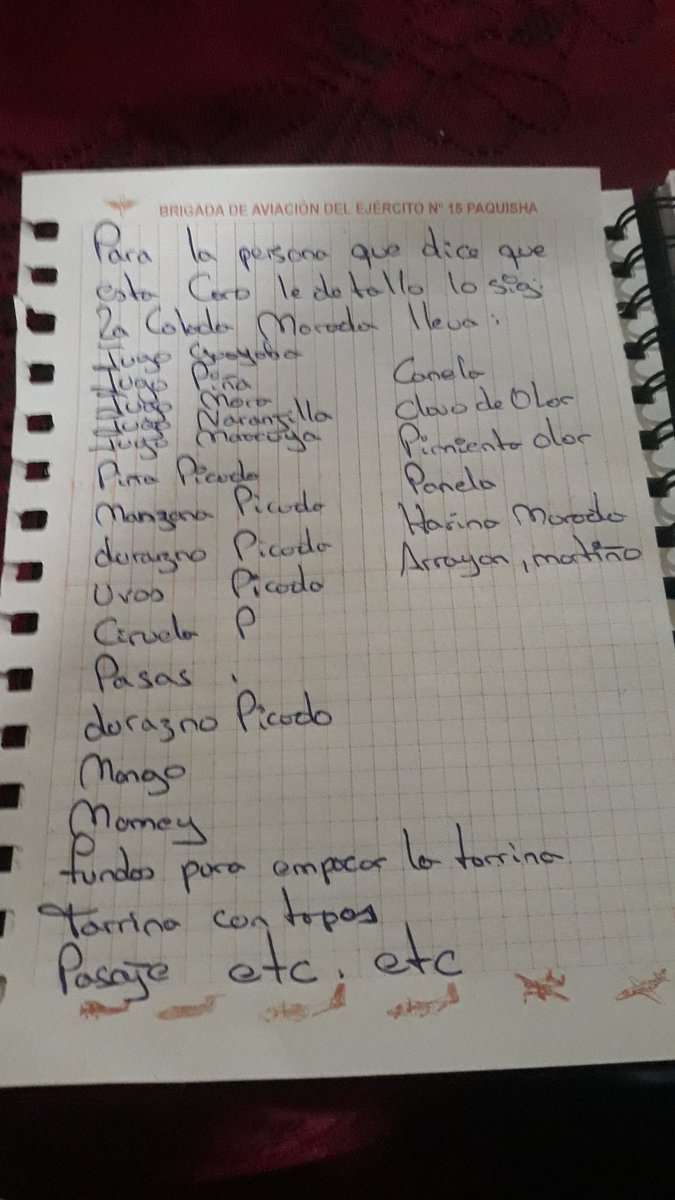 BRIGADA DE AVIACIÓN DEL EJÉRCITO Nº 15 PAQUISHA
Para la persona que dice que
esta Caro le detallo lo sig:
La Colada Morada lleva:
Jugo Guayaba
Jugo Piña
Jugo Mora
Jugo Naranjilla
Jugo Maracuya
Piña Picada
Manzana Picada
durazno Picado
Uvas Picada
Ciruela P
Pasas .
durazno Picado
Mango
Mamey
fundas para empacar la tarrina
Tarrina con tapas
Pasaje etc. etc
Canela
Clavo de Olor
Pimienta olor
Panela
Harina Morada
Arrayan, mortiño